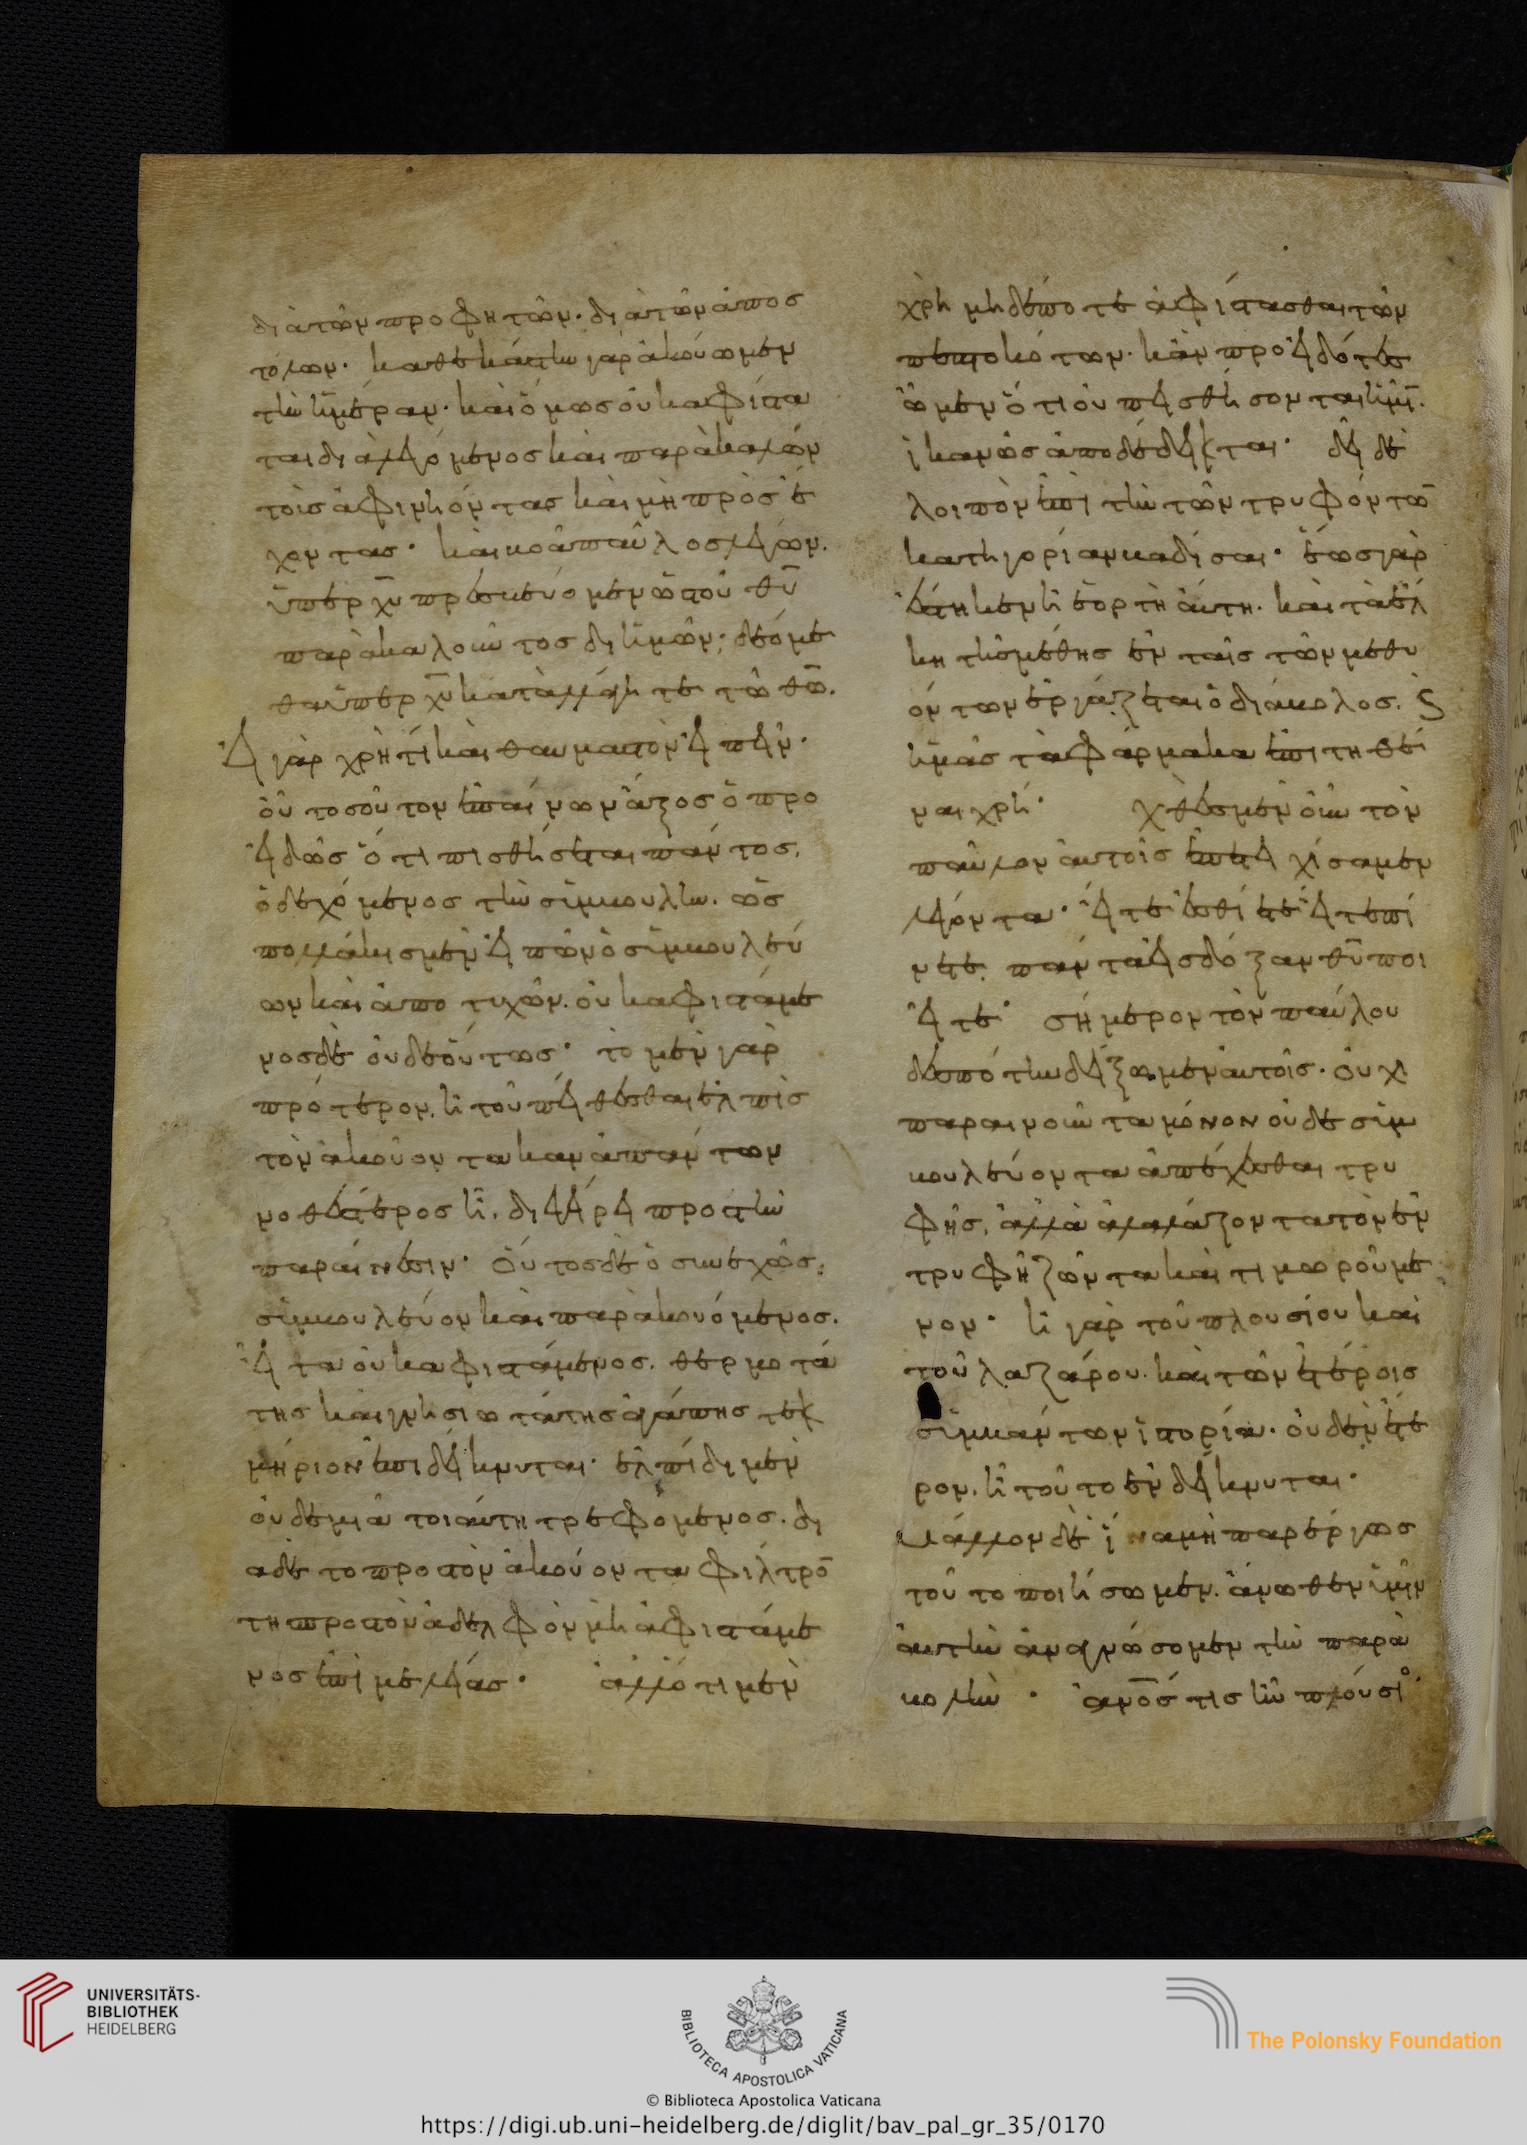 διὰ τῶν προφητῶν· διὰ τῶν ἀποσ
τόλων· καθεκάστην γὰρ ἀκούωμεν
τὴν ἡμέραν· καὶ ὅμως οὐκ ἀφίστα
ται διαλεγόμενος καὶ παρακαλῶν
τοῖς ἀφινιόντας καὶ μὴ προσέ
χοντας· καὶ βοᾶ παῦλος λέγων.
ὑπὲρ χυ πρεσβεύομεν ὡς τοῦ θυ
παρακαλοῦντος δι ἡμῶν· δεόμε
θα ὑπὲρ χυ καταλλάγητε τῶ θω.
εἰ γὰρ χρή τι καὶ θαυμαστὸν εἰπεῖν·
οὐ τοσοῦτον ἐπαίνων ἄξιος ὁ προ
ειδὼς ὅτι πισθήσεται πάντος,
ὁ δεχόμενος τὴν συμβουλὴν. ὡς
πολλάκις μὲν εἰπὼν ὁ συμβουλεύ
ων καὶ ἀποτυχῶν. οὐκ ἀφιστάμε
νος δὲ οὐδε οὕτως· τὸ μὲν γὰρ
πρότερον, ἡ τοῦ πείθεσθαι ἐλπὶς
τὸν ἀκούοντα κἂν ἁπάντων
νοθέστερος ἦ, διεγείρει πρὸς τὴν
παραίνεσιν· οὗτος δὲ ὁ συνεχῶς
συμβουλεύον καὶ παρακουόμενος.
εἶτα οὐκ ἀφιστάμενος. θερμοτά
της καὶ γνησιωτάτης ἀγάπης τεκ
μήριον ἐπιδείκνυται· ἐλπίδι μὲν
οὐδεμιᾶ τοιαύτη τρεφόμενος. δι
α δὲ το προς τὸν ἀκούοντα φίλτρον
τη προς τὸν ἀδελφὸν μὴ ἀφιστάμε
νος ἐπιμελείας· ἀλλ ὅτι μὲν
χρὴ μηδέποτε ἀφίστασθαι τῶν
πεπτωκότων· κἂν προειδότες
ὦμεν ὅτι οὐ πεισθήσονται ἡμῖν.
ἱκανῶς ἀποδέδεικται· δεῖ δὲ
λοιπὸν ἐπὶ τὴν τῶν τρυφόντων
κατηγορίαν βαδίσαι· ἕως γὰρ
ἕστηκεν ἡ ἑορτὴ αὕτη. καὶ τὰ ἕλ
κη τῆς μέθης ἐν ταῖς τῶν μεθυ
όντων ἐργάζεται ὁ διάβολος. καὶ
ἡμᾶς τὰ φάρμακα ἐπιτηθέ
ναι χρή· χθὲς μὲν οὖν τὸν
παῦλον αὐτοῖς ἐπετειχίσαμεν
λέγοντα· εἴτε ἐσθίετε εἴτε πί
νετε. πάντα εἰς δόξαν θυ ποι
εῖτε· σήμερον τὸν παύλου
δεσπότην δείξωμεν αὐτοῖς· οὐχὶ
παραινοῦντα μόνον οὐδε συμ
βουλεύοντα ἀπέχεσθαι τρυ
φῆς, ἀλλὰ κολάζοντα τὸν ἐν
τρυφῆ ζῶντα καὶ τιμωρούμε
νον· ἡ γὰρ τοῦ πλουσίου καὶ
τοῦ λαζάρου· καὶ τῶν ἑτέροις
συμβάντων ἱστορία· οὐδὲν ἕτε
ρον, ἢ τοῦτο ἐνδείκνυται·
Μάλλον δὲ ἵνα μὴ παρέργως
τοῦτο ποιήσωμεν. ἄνωθεν ὑμῖν
αὐτὴν ἀναγνώσομεν τὴν παρα
βολὴν· ἀνος τις ἦν πλούσιο
UNIVERSITÄTS-
BIBLIOTHEK
HEIDELBERG
BIBLIOTECA APOSTOLICA VATICANA
The Polonsky Foundation
© Biblioteca Apostolica Vaticana
https://digi.ub.uni-heidelberg.de/diglit/bav_pal_gr_35/0170